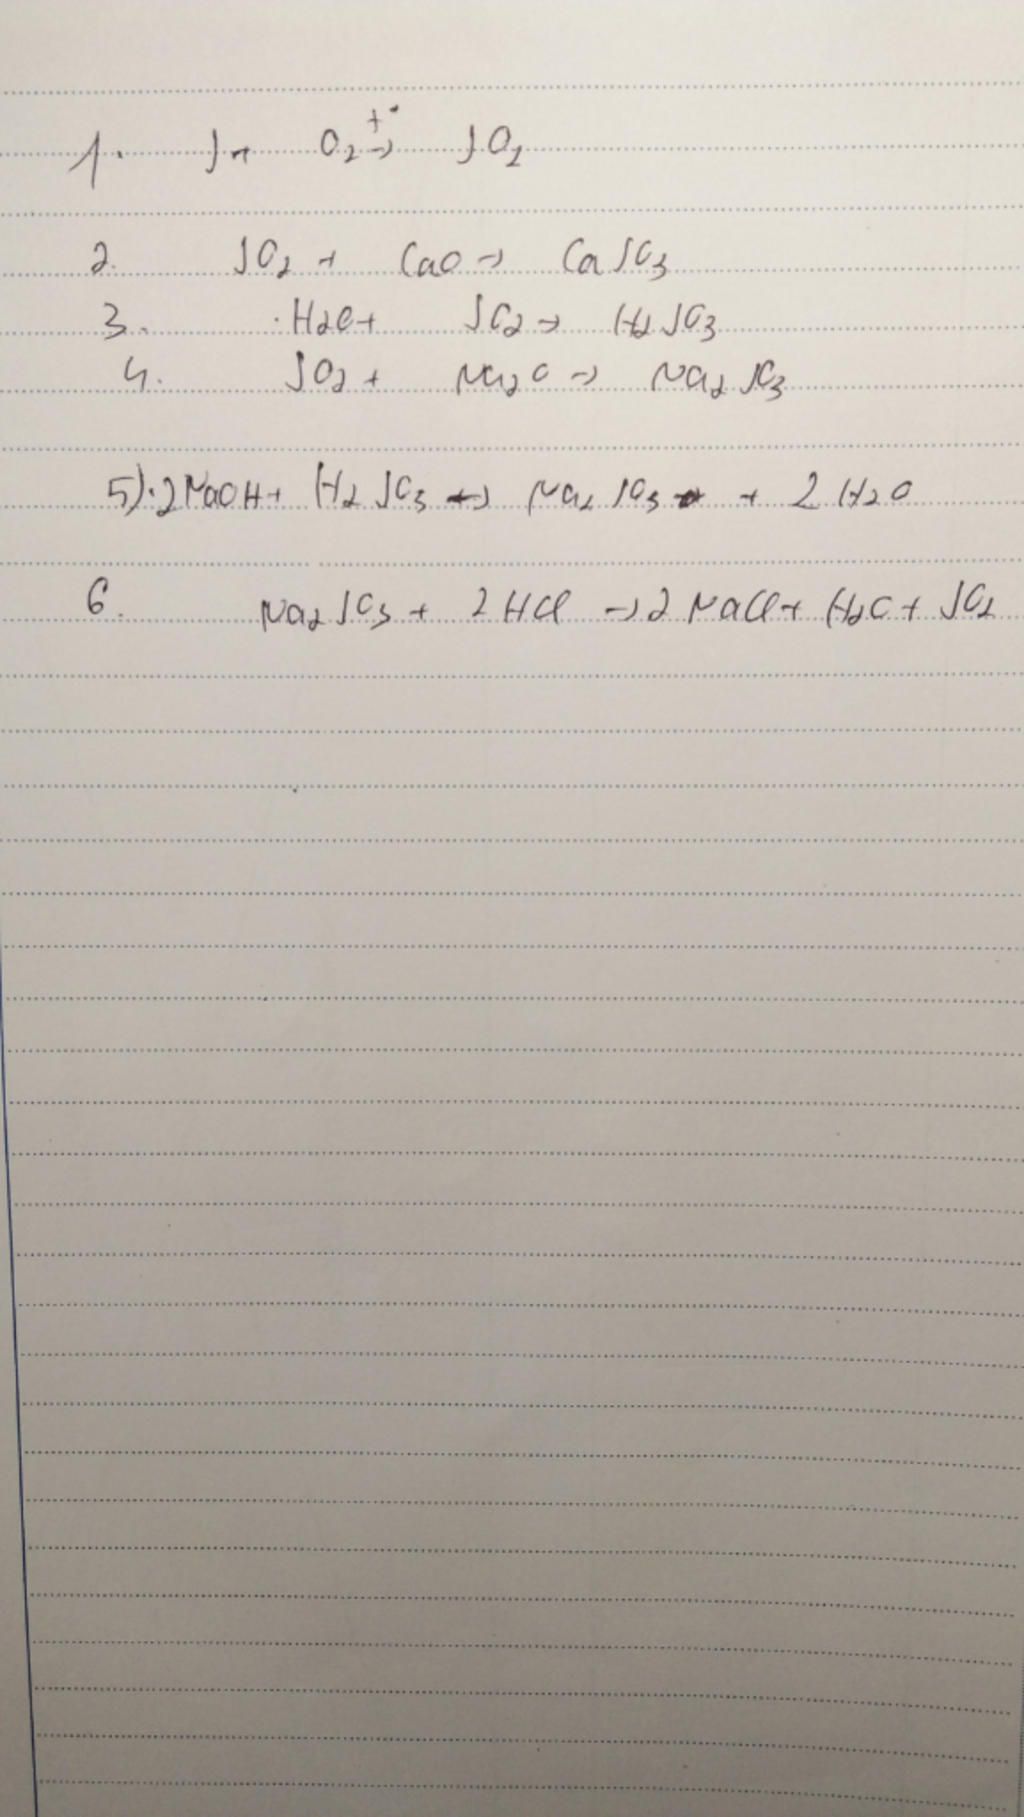 1. S + O2 t°→ SO2
2. SO2 + CaO → CaSO3
3. H2O + SO2 → H2SO3
4. SO2 + Na2O → Na2SO3
5). 2NaOH + H2SO3 → Na2SO3 + 2H2O
6. Na2SO3 + 2HCl → 2NaCl + H2O + SO2